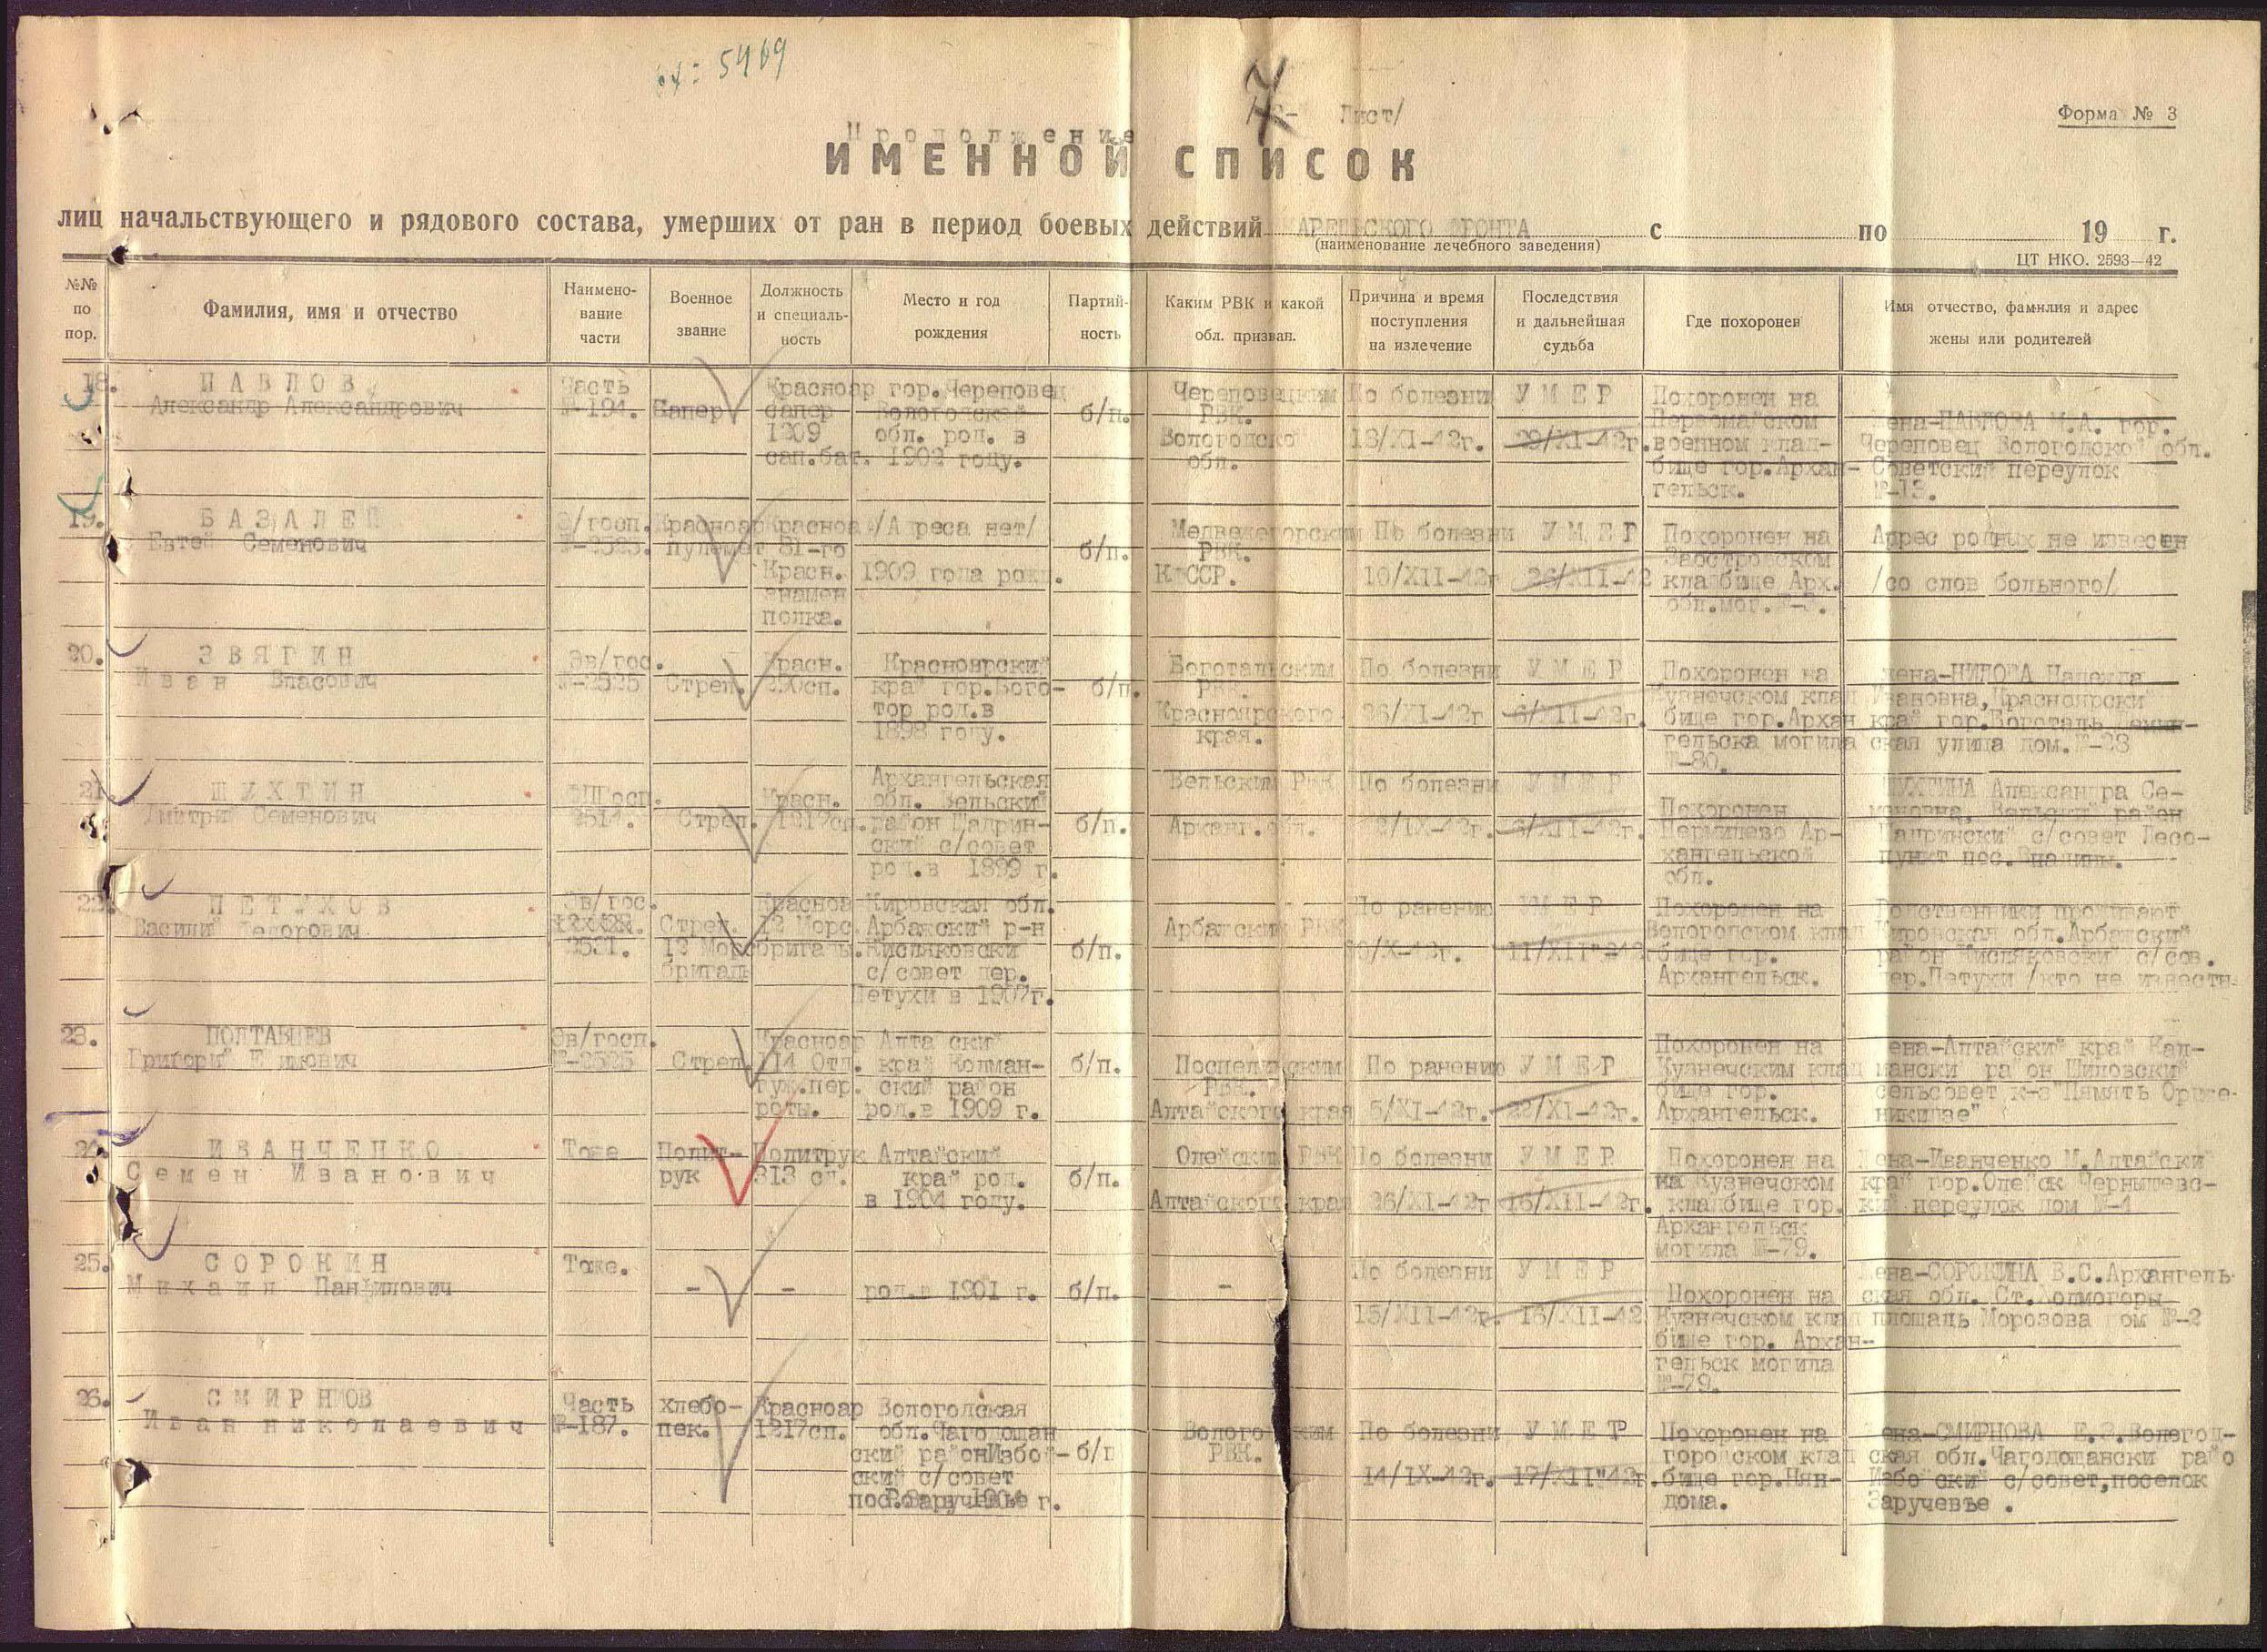 5469
7
Лист/
Форма № 3
Продолжение
ИМЕННОЙ СПИСОК
лиц начальствующего и рядового состава, умерших от ран в период боевых действий КАРЕЛЬСКОГО ФРОНТА с по 19 г.
(наименование лечебного заведения)
ЦТ НКО. 2593—42
№№ по пор.
Фамилия, имя и отчество
Наимено-вание части
Военное звание
Должность и специаль-ность
Место и год рождения
Партий-ность
Каким РВК и какой обл. призван.
Причина и время поступления на излечение
Последствия и дальнейшая судьба
Где похоронен
Имя отчество, фамилия и адрес жены или родителей
18.
ПАВЛОВ
Александр Александрович
Часть
№-194.
Сапер
Красноар
сапер
1209
сап.бат.
гор.Череповец
Вологодской
обл. род. в
1902 году.
б/п.
Череповецким
РВК.
Вологодской
обл.
По болезни
18/XI-42г.
УМЕР
29/XI-42г.
Похоронен на
Первомайском
военном клад-
бище гор.Архан-
гельск.
жена-ПАВЛОВА М.А. гор.
Череповец Вологодской обл.
Советский переулок
№-13.
19.
БАЗАЛЕЙ
Евтей Семенович
Э/госп.
№-2525.
Красноар
Пулемет
Красноа
31-го
Красн.
знамен
полка.
/Адреса нет/
1909 года рожд.
б/п.
Медвежегорским
РВК.
К ССР.
По болезни
10/XII-42г
УМЕР
26/XII-42
Похоронен на
Заостровском
кладбище Арх.
обл.мог.№-3.
Адрес родных не известен
/со слов больного/
20.
ЗВЯГИН
Иван Власович
Эв/гос.
№-2525
Стрел.
Красн.
290сп.
Красноярский
край гор.Бого-
тор род.в
1898 году.
б/п.
Боготальским
РВК.
Красноярского
края.
По болезни
26/XI-42г
УМЕР
6/XII-42г.
Похоронен на
Кузнечском клад
бище гор.Архан
гельска могила
№-80.
жена-НИЛОВА Надежда
Ивановна,Красноярский
край гор.Боготаль
ская улица дом.№-28
21.
ШУХТИН
Дмитрий Семенович
2514.
Стрел.
Красн.
1217сп.
Архангельская
обл. Вельский
район Шадрин-
ский с/совет
род.в 1899 г.
б/п.
Вельским РВК
Арханг.обл.
По болезни
2/IX-42г.
УМЕР
3/XII-42г.
Похоронен
Пермилово Ар-
хангельской
обл.
ШУХТИНА Александра Се-
меновна, Вельский район
Шадринский с/совет Лесо-
пункт пос.Впадины.
22.
ПЕТУХОВ
Василий Федорович
Эв/гос.
2531.
Стрел.
12 Мор
бригады
Красноа
12 Морс
бригады.
Кировская обл.
Арбажский р-н
Кисляковский
с/совет дер.
Петухи в 1907г.
б/п.
Арбажским РВК
По ранению
30/X-42г.
УМЕР
11/XII-42
Похоронен на
Вологодском клад
бище гор.
Архангельск.
Родственники проживают
Кировская обл.Арбажский
район Кисляковский с/сов.
дер.Петухи /кто не известн.
23.
ПОЛТАВЦЕВ
Григорий Ефимович
Эв/госп.
№-2525
Стрел.
Красноар
114 Отд.
гуж.пер.
роты.
Алтайский
край Колман-
ский район
род.в 1909 г.
б/п.
Поспелихским
РВК.
Алтайского края
По ранению
5/XI-42г.
УМЕР
22/XI-42г.
Похоронен на
Кузнечским клад
бище гор.
Архангельск.
жена-Алтайский край Кал-
манский район Шиловский
сельсовет к-з"Память Ордже-
никидзе"
24.
ИВАНЧЕНКО
Семен Иванович
Тоже
Полит-
рук
Политрук
313 сп.
Алтайский
край род.
в 1904 году.
б/п.
Олейским РВК
Алтайского края
По болезни
26/XI-42г
УМЕР
16/XII-42г.
Похоронен на
на Кузнечском
кладбище гор.
Архангельск
могила №-79.
жена-Иванченко М.Алтайский
край гор.Олейск Чернышевс-
кий переулок дом №-4
25.
СОРОКИН
Михаил Панфилович
Тоже.
-
-
род.в 1901 г.
б/п.
-
По болезни
15/XII-42г.
УМЕР
16/XII-42
Похоронен на
Кузнечском клад
бище гор. Архан-
гельск могила
№-79.
жена-СОРОКИНА В.С.Архангель
ская обл. Ст.Холмогоры
площадь Морозова дом №-2
26.
СМИРНОВ
Иван николаевич
Часть
№-187.
хлебо-
пек.
Красноар
1217сп.
Вологодская
обл.Чагодощан
ский районИзбой-
ский с/совет
б/п
Вологодским
РВК.
По болезни
14/IX-42г.
УМЕР
17/XII"42г.
Похоронен на
городском клад
бище гор.Нян-
дома.
жена-СМИРНОВА Е.З.Вологод-
ская обл.Чагодощанский райо
Избойский с/совет,поселок
Заручевье .